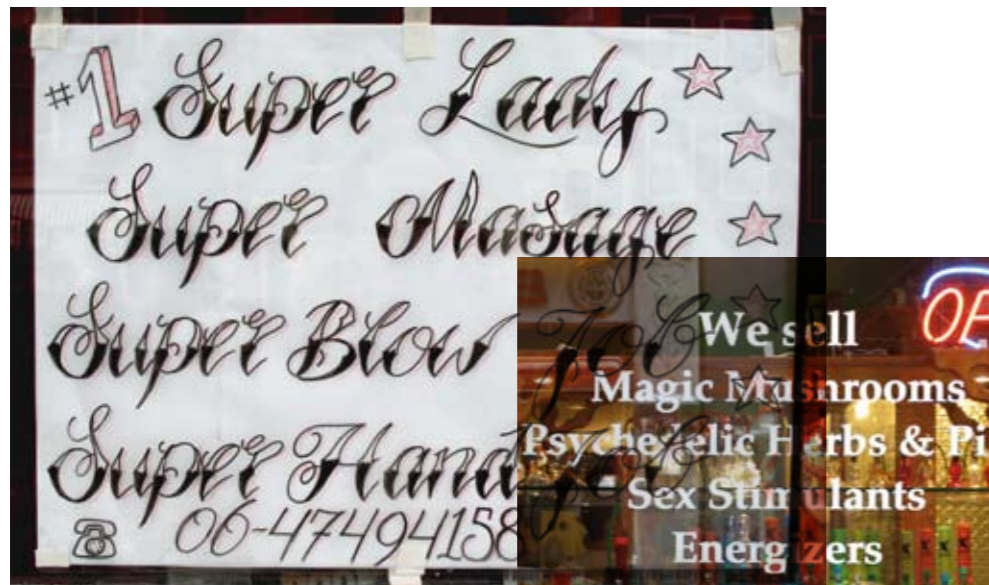 #1 Super Lady
Super Masage
Super Blow Job
Super Hand Job
06-47494158
We sell
Magic Mushrooms
Psychedelic Herbs &
Sex Stimulants
Energizers